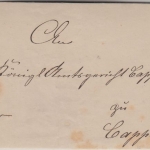 An
Königl. Amtsgericht Capp
zu
Capp